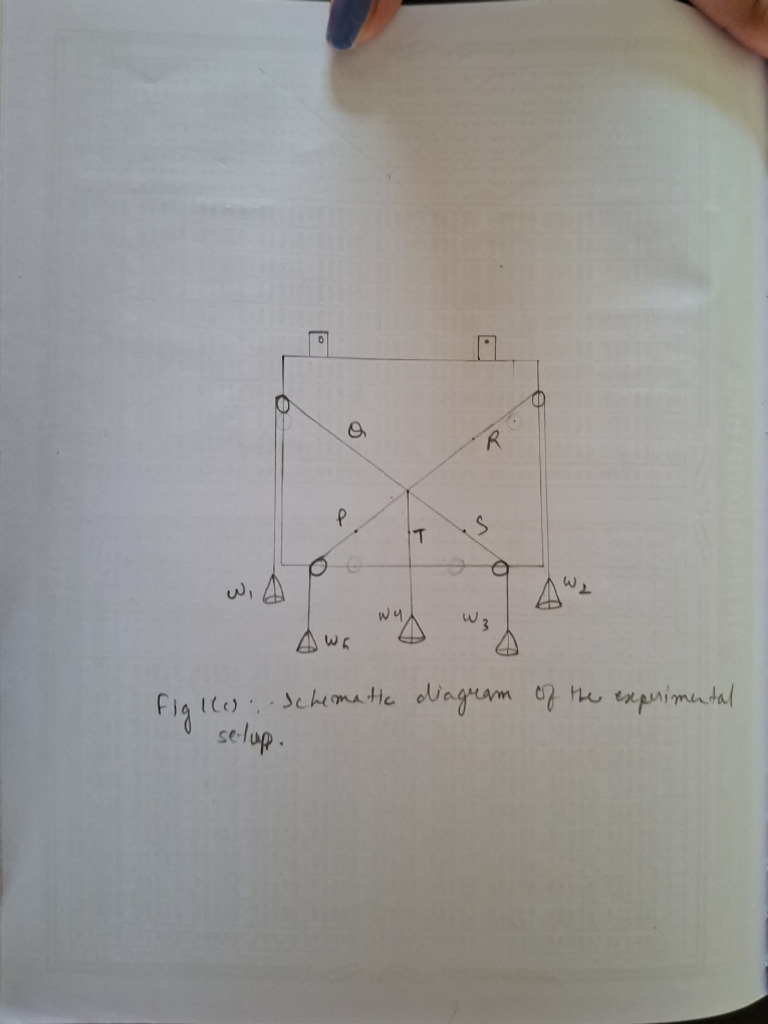 Q
R
P
S
T
W1
W2
W4
W3
W5
Fig 1(c) :. Schematic diagram of the experimental
setup.